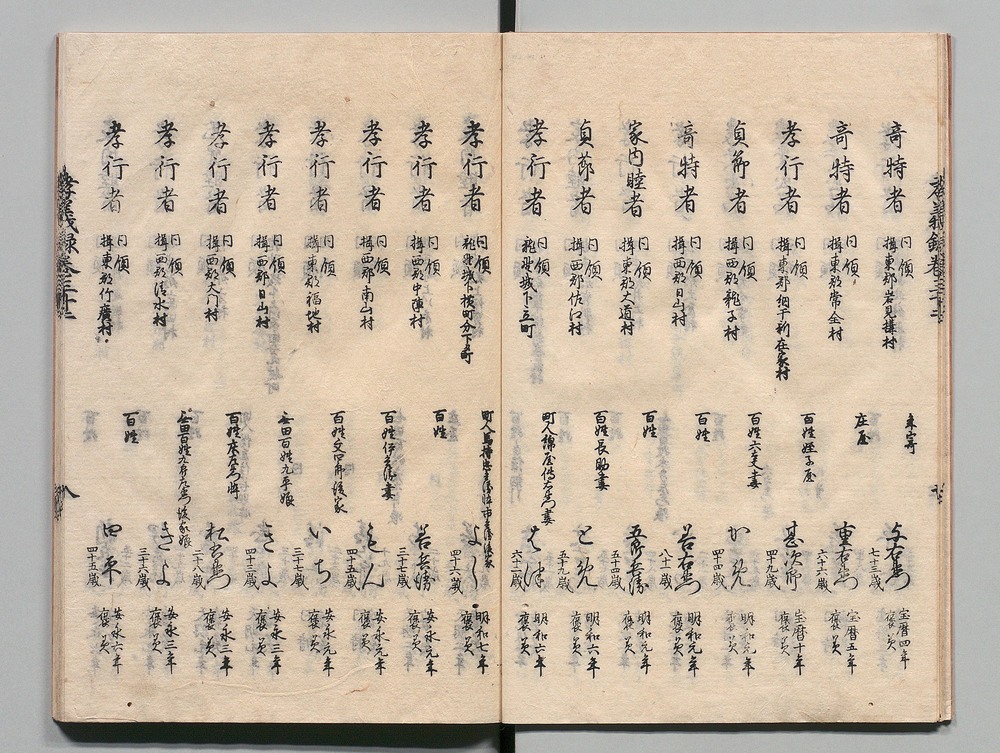 孝義録巻三十二
奇特者
同領
揖東郡岩見搆村
年寄
七十三歳
宝暦四年
褒美
奇特者
同領
揖東郡常全村
庄屋
重右衛門
六十六歳
宝暦五年
褒美
孝行者
同領
揖東郡網干新在家村
百姓姪子屋
甚次郎
四十九歳
宝暦十年
褒美
貞節者
同領
揖西郡龍子村
百姓六太夫妻
かめ
四十四歳
明和元年
褒美
奇特者
同領
揖西郡日山村
百姓
若右衛門
八十一歳
明和元年
褒美
家内睦者
同領
揖東郡大道村
百姓
五郎兵衛
五十四歳
明和元年
褒美
貞節者
同領
揖西郡佐江村
百姓長助妻
とめ
五十九歳
明和六年
褒美
孝行者
同領
龍野城下立町
町人綿屋傳右衛門妻
はつ
六十二歳
明和六年
褒美
孝行者
同領
龍野城下横町分下町
四十六歳
明和七年
褒美
孝行者
同領
揖西郡中陣村
百姓
若兵衛
三十七歳
安永元年
褒美
孝行者
同領
揖西郡南山村
百姓伊兵衛妻
とん
四十五歳
安永元年
褒美
孝行者
同領
揖東郡福地村
百姓文四郎後家
いち
三十七歳
安永元年
褒美
孝行者
同領
揖西郡日山村
無田百姓九平娘
きよ
四十三歳
安永三年
褒美
孝行者
同領
揖西郡大門村
百姓庄右衛門忰
松右衛門
二十八歳
安永三年
褒美
孝行者
同領
揖西郡清水村
無田百姓九郎右衛門後家娘
きよ
三十六歳
安永三年
褒美
孝行者
同領
揖東郡竹廣村
百姓
四平
四十五歳
安永六年
褒美
孝義録巻三十二
八